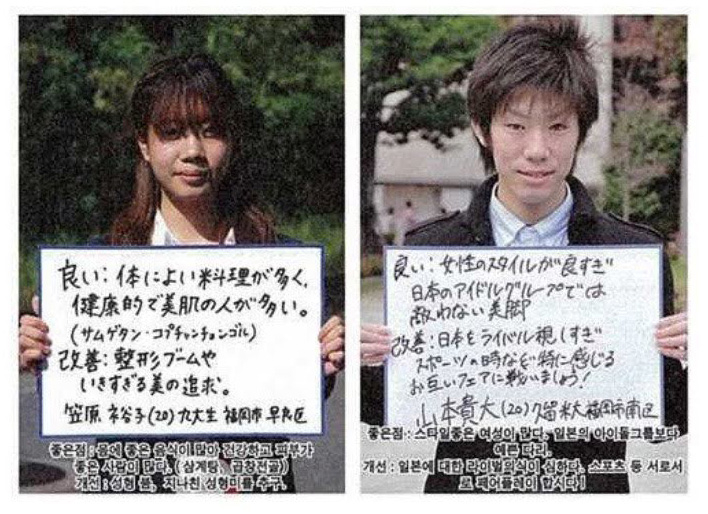 良い：体によい料理が多く、
健康的で美肌の人が多い。
(サムゲタン・コプチャンチョンゴル)
改善：整形ブームや
いきすぎる美の追求。
笠原 裕子(20)九大生 福岡市 早良区
좋은점 : 몸에 좋은 음식이 많아 건강하고 피부가
좋은 사람이 많다. (삼계탕, 곱창전골)
개선 : 성형 붐, 지나친 성형미를 추구.
良い：女性のスタイルが良すぎ
日本のアイドルグループでは
敵わない美脚
改善：日本をライバル視しすぎ
スポーツの時など特に感じる
お互いフェアに戦いましょう！
山本貴大(20)久留米大 福岡市南区
좋은점 : 스타일좋은 여성이 많다. 일본의 아이돌그룹보다
예쁜 다리.
개선 : 일본에 대한 라이벌의식이 심하다. 스포츠 등 서로서
로 페어플레이 합시다!